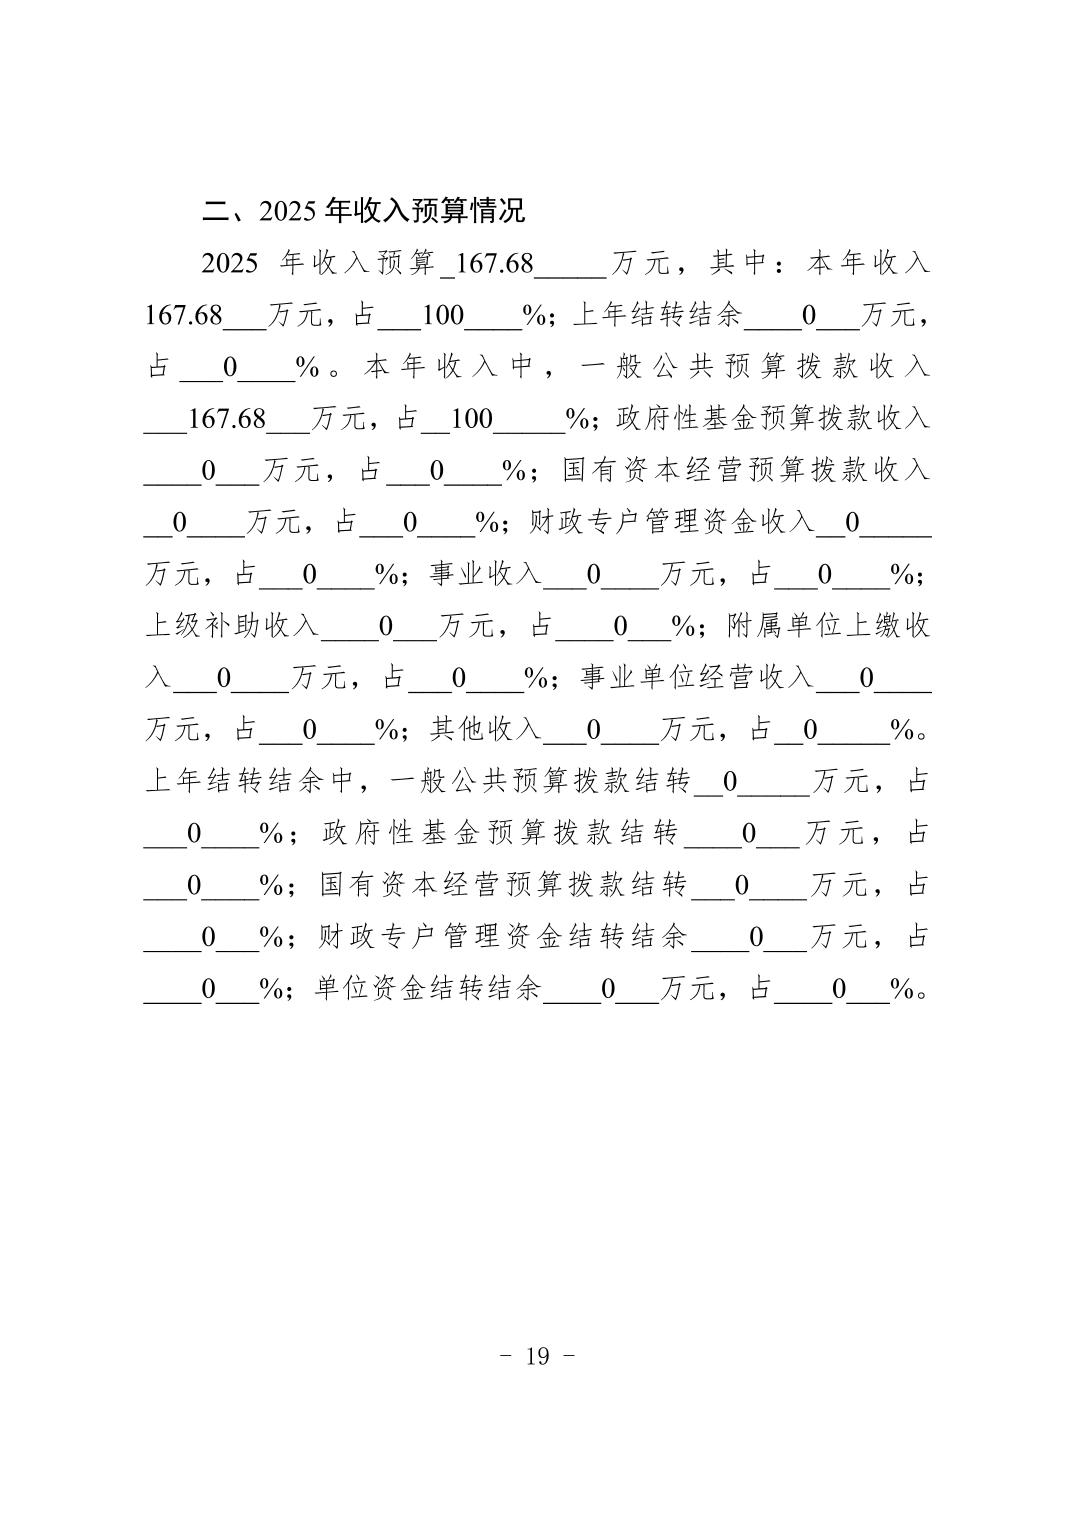 二、2025 年收入预算情况
2025 年收入预算_167.68_____万元，其中：本年收入
167.68___万元，占___100____%；上年结转结余____0___万元，
占___0____%。本年收入中，一般公共预算拨款收入
___167.68___万元，占__100_____%；政府性基金预算拨款收入
____0___万元，占___0____%；国有资本经营预算拨款收入
__0____万元，占___0____%；财政专户管理资金收入__0_____
万元，占___0____%；事业收入___0____万元，占___0____%；
上级补助收入____0___万元，占____0___%；附属单位上缴收
入___0____万元，占___0____%；事业单位经营收入___0____
万元，占___0____%；其他收入___0____万元，占__0_____%。
上年结转结余中，一般公共预算拨款结转__0_____万元，占
___0____%；政府性基金预算拨款结转____0___万元，占
___0____%；国有资本经营预算拨款结转___0____万元，占
____0___%；财政专户管理资金结转结余____0___万元，占
____0___%；单位资金结转结余____0___万元，占____0___%。
- 19 -